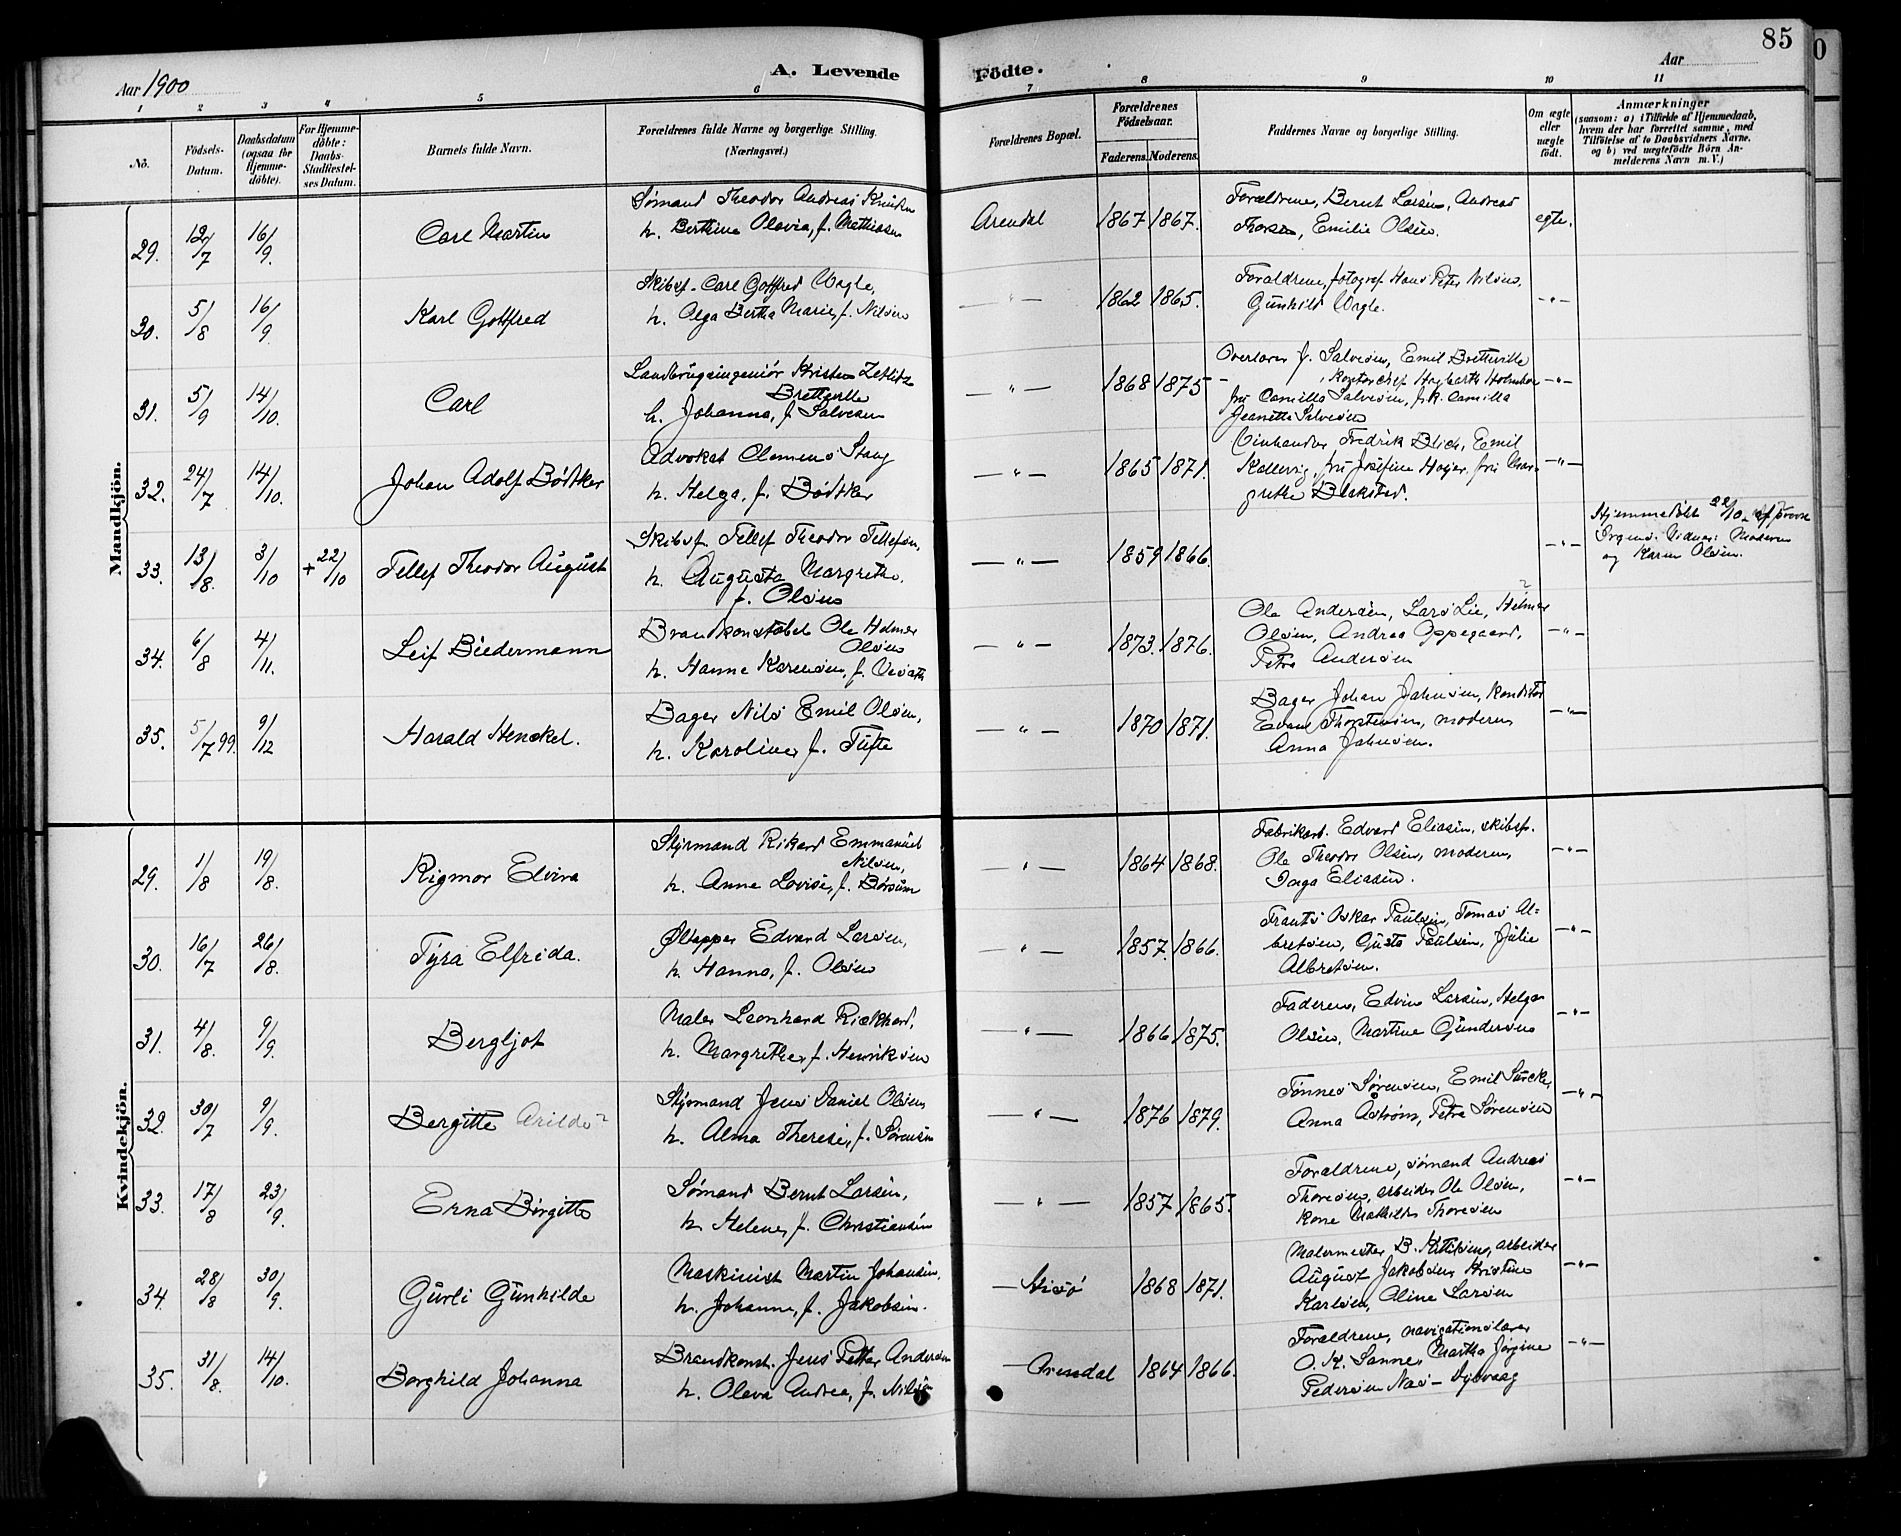 85
Aar 1900
A. Levende Födte.
Aar
1 2 3 4 5 6 7 8 9 10 11
Nö.
Födsels-Datum.
Daabsdatum (ogsaa for Hjemmedöbte).
For Hjemmedöbte: Daabs-Stadfæstelses Datum.
Barnets fulde Navn.
Forældrenes fulde Navne og borgerlige Stilling. (Næringsvei.)
Forældrenes Bopæl.
Forældrenes Födselsaar.
Faderens. Moderens.
Faddernes Navne og borgerlige Stilling.
Om ægte eller uægte födt.
Anmærkninger (saasom: a) i Tilfælde af Hjemmedaab, hvem der har forrettet samme, med Tilföielse af to Daabsvidners Navne, og b) ved uægtefödte Börn Anmelderens Navn m. V.)
Mandkjön.
29. 12/7 16/9 Carl Martin
Sømand Theodor Andreas Knudsen
h. Berthine Olavia, f. Mathiesen
Arendal 1867 1867.
Forældrene, Bernt Larsen, Andreas
Thorsen, Emilie Olsen.
egte.
30. 5/8 16/9 Karl Gottfred
Skibsf. Carl Gottfred Wagle,
h. Olga Bertha Marie, f. Nilsen
— " — 1862 1865.
Forældrene, fotograf Hans Peter Nilsen,
Gunhild Wagle.
— " —
31. 5/9 14/10. Carl
Landbrugsingeniør Kristen Zetlitz
Bretteville
h. Johanna, f. Salvesen
— " — 1868 1875
Overlærer J. Salvesen, Emil Bretteville
, kontorchef Hagbarth
fru Camilla Salvesen, frk. Camilla
Jeanette Salvesen
— " —
32. 24/7 14/10. Johan Adolf Bødtker
Advokat Clemens Stang
h. Helga, f. Bødtker
— " — 1865 1871.
Vinhandler Fredrik Blich, Emil
Kallevig, fru Josefine Høyer, fru Mar-
grethe Blakstad.
— " —
33. 13/8. 3/10 + 22/10 Tellef Theodor August
Skibsf. Tellef Theodor Tellefsen,
h. Augusta Margrethe,
f. Olsen
— " — 1859 1866.
— " —
Hjemmedøbt 22/10 af provst
Irgens. Vidner: Moderen
og Karen Olsen.
34. 6/8 4/11. Leif Biedermann
Brandkonstabel Ole Helmer
Olsen
h. Hanne Karensen, f.
— " — 1873. 1876.
?
Ole Andersen, Lars Lie, Helmer
Olsen, Andrea Oppegaard,
Petra Andersen
— " —
35. 5/7 99. 9/12 Harald Henckel.
Bager Nils Emil Olsen,
h. Karoline, f. Tufte
— " — 1870 1871.
Bager Johan Jahnsen, konditor
Edvard Thorstensen, moderen
Anna Jahnsen.
— " —
Kvindekjön.
29. 1/8 19/8. Rigmor Elvira
Styrmand Rikard Emmanuel
Nilsen,
h. Anne Lovise, f. Børsum
— " — 1864 1868.
Fabrikant. Edvard Eliasen, skibsf.
Ole Theodor Olsen, moderen,
Inga Eliasen.
— " —
30. 16/7 26/8. Tyra Elfrida.
Øltapper Edvard Larsen,
h. Hanna, f. Olsen
— " — 1857. 1866.
Frants Oskar Paulsen, Tomas Al=
bretsen, Gusta Paulsen, Julie
Albretsen.
— " —
31. 4/8. 9/9. Bergljot
Maler Leonhard Rickhard,
h. Margrethe, f. Henriksen
— " — 1866 1875.
Faderen, Edvin Larsen, Helga
Olsen, Martine Gundersen
— " —
32. 30/7 9/9. Bergitte Arilds?
Styrmand Jens Daniel Olsen
h. Alma Therese, f. Sørensen
— " — 1876 1879.
Tønnes Sørensen, Emil
Anna Åstrøm, Petra Sørensen
— " —
33. 17/8 23/9. Erna Birgitte
Sømand Bernt Larsen,
h. Helene, f. Christiansen
— " — 1857 1865.
Forældrene, sømand Andreas
Thoresen, arbeider Ole Olsen,
kone Mathilde Thoresen
— " —
34. 28/8 30/9. Gurli Gunhilde
Maskinist Martin Johansen,
h. Johanne, f. Jakobsen.
— Hisø 1868 1871.
Malermester B. Kittilsen, arbeider
August Jakobsen, Kristine
Karlsen, Oline Larsen
— " —
35. 31/8. 14/10. Borghild Johanna
Brandkonst. Jens Petter Andersen
h. Olava Andrea, f. Nilsen
— Arendal 1864 1866.
Forældrene, navigationslærer
O. K. Sanne, Martha Jørgine
Pedersen Næs – Dybvaag
— " —